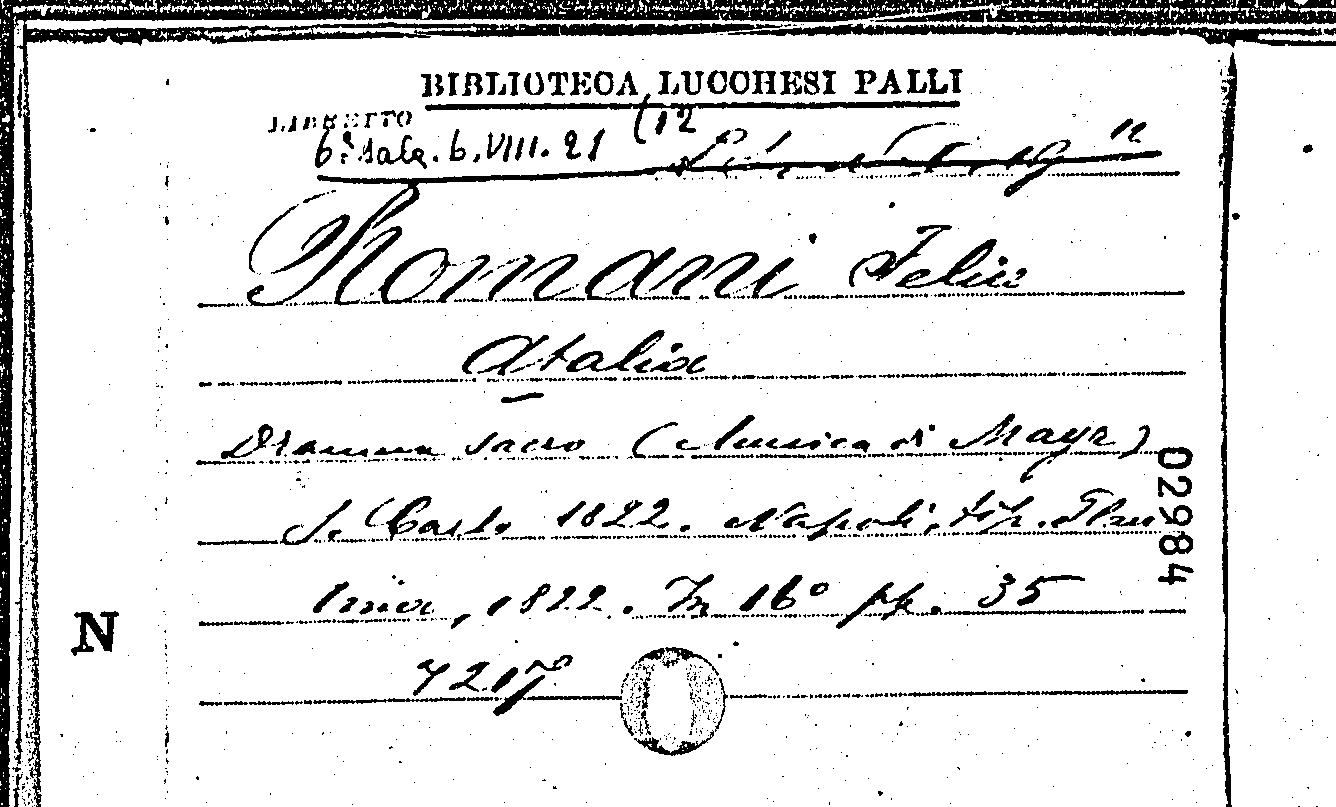 BIBLIOTECA LUCCHESI PALLI
LIBRETTO
6ª Sala. b. VIII. 21 (12
Romani Felice
Atalia
Dramma sacro (Musica di Mayr)
S. Carlo 1822. Napoli, tip. Flau
tina, 1822. In 16° pp. 35
7217
02984
N